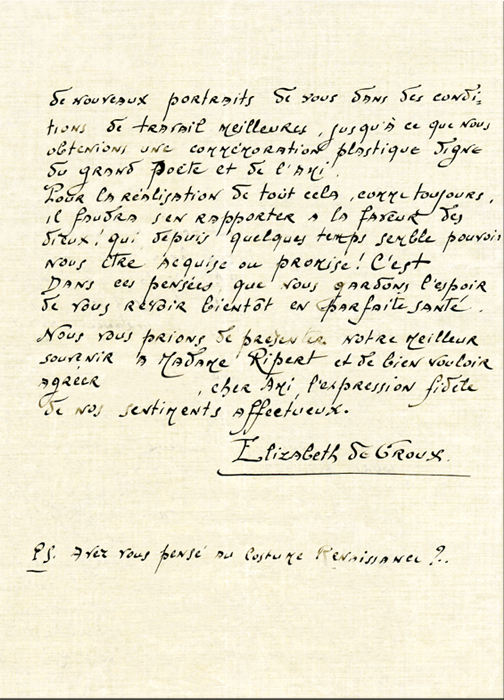 de nouveaux portraits de vous dans des condi-
tions de travail meilleures, jusqu'à ce que nous
obtenions une commémoration plastique digne
du grand Poète et de l'Ami.
Pour la réalisation de tout cela, comme toujours,
il faudra s'en rapporter a la faveur des
dieux! qui depuis quelques temps semble pouvoir
nous être acquise ou promise! C'est
Dans ces pensées, que nous gardons l'espoir
de vous revoir bientôt en parfaite santé.
Nous vous prions de presenter notre meilleur
souvenir a Madame Ripert et de bien vouloir
agréer , cher Ami, l'expression fidèle
de nos sentiments affectueux.
Elizabeth de Groux.
PS. Avez vous pensé au Costume Renaissance ?..